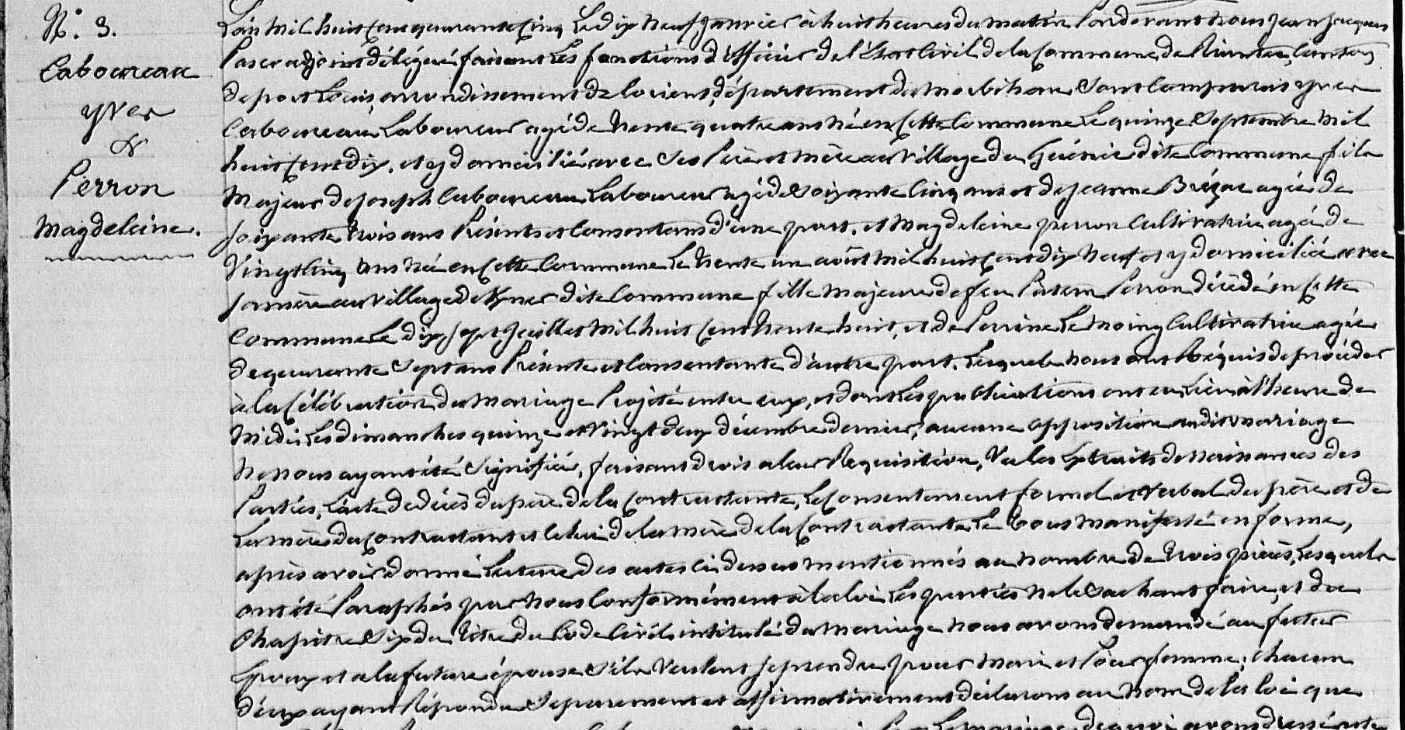 N.° 3.
Laboureau
yves
&
Perron
Magdeleine.
L'an mil huit Cent quarante Cinq Le dix neuf Janvier à huit heures du matin Pardevant nous Jean Jacques
adjoint délégué faisant Les fonctions d'officier de l'État Civil de la Commune de Riantec, Canton
de port Louis arrondissement de Lorient, département du morbihan Sont Comparus yves
Laboureau Laboureur agé de trente quatre ans né en Cette Commune Le quinze Septembre Mil
huit Cent dix, et y domicilié avec Ses Père et mère au Village de dite Commune fils
Majeur de Joseph Laboureau Laboureur agé de Soixante Cinq ans et de Jeanne agée de
Soixante trois ans Présents et Consentans d'une part, et Magdeleine perron Cultivatrice agée de
Vingt Cinq ans née en Cette Commune Le trente un août Mil huit Cent dix neuf et y domiciliée avec
Sa mère au Village de dite Commune fille Majeure de feu Perron décédé en Cette
Commune Le dix Sept Juillet Mil huit Cent trente huit, et de Perrine Le Moing Cultivatrice agée
de quarante Sept ans Présente et Consentante d'autre part. Lesquels nous ont Réquis de procéder
à la Célébration du Mariage Projeté entre eux, et dont Les publications ont eu Lieu à l'heure de
Midi Les dimanches quinze et Vingt deux décembre dernier, aucune opposition audit mariage
Ne nous ayant été Signifiée, faisant droit a leur Requisition, Vu les Extraits de naissances des
Parties, L'acte de décès du père de la Contractante, Le Consentement formel et Verbal du père et de
La mère du Contractant et Celui de la mère de la Contractante Le tout Manifesté en forme,
après avoir donné Lecture des actes Ci dessus mentionnés au nombre de trois pièces, Lesquels
ont été Paraphés par nous Conformément à la loi Les parties ne le Sachant faire, et du
Chapitre Six du titre du Code Civil intitulé du Mariage nous avons demandé au futur
Epoux et a la future épouse S'ils Veulent Se prendre pour Mari et Pour femme; chacun
d'eux ayant Répondu Séparément et affirmativement déclarons au Nom de la loi que